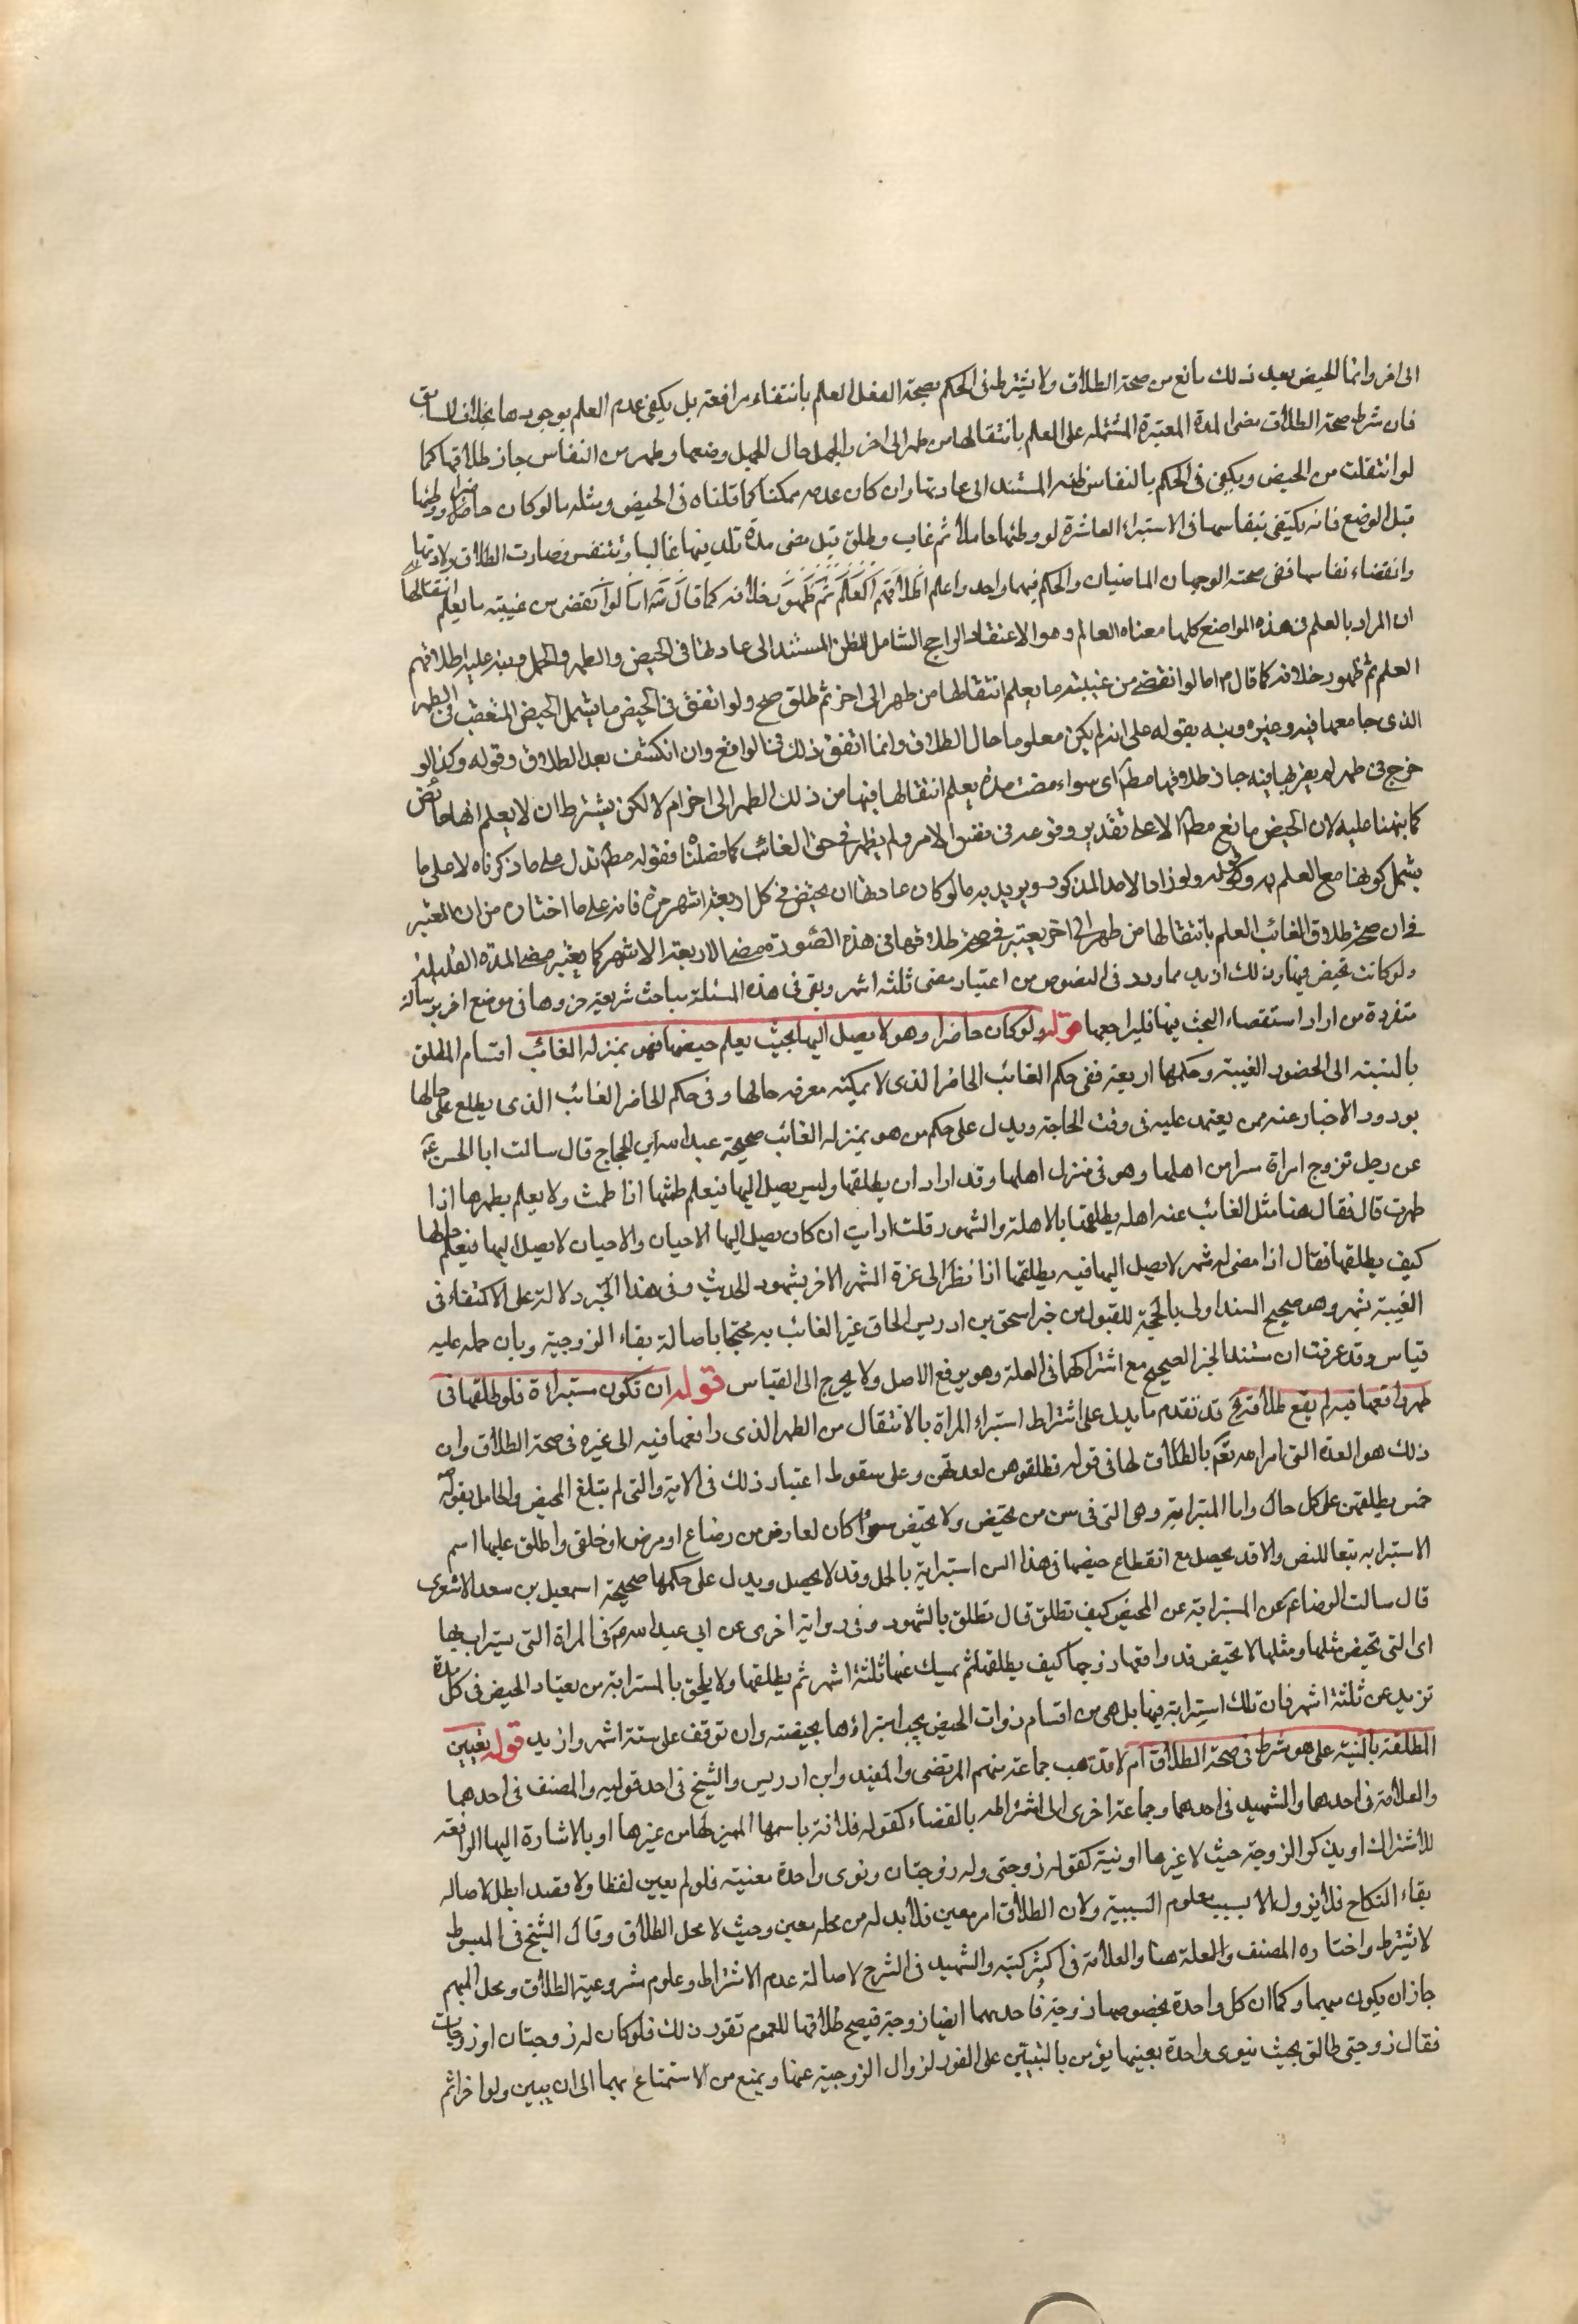 الى اخر وانما الحيض بعد ذلك مانع من صحة الطلاق ولا يشترط فى الحكم بصحة الفعل العلم بانتفاء مرافعته بل يكفى عدم العلم بوجودها بخلاف السابق
فان شرط صحة الطلاق مضى المدة المعتبرة المشتمله على العلم بانتقالها من طهر الى اخر والجهل حال الحمل وضعها وطهر من النفاس جاز طلاقها كما
لو انتقلت من الحيض ويكفى فى الحكم بالنفاس ظنه المستند الى عادتها وان كان عدمه ممكنا كما قلناه فى الحيض ومثله مالو كان حاضرا ووطئها
قبل الوضع فانه يكتفى بنفاسها فى الاستبراء العاشرة لو وطئها حاملا ثم غاب وطلق قبل مضى مدة تلد فيها غالبا وتتنفس فصادت الطلاق ولادتها
وانقضاء نفاسها ففى صحته الوجهان الماضيان والحكم فيهما واحد واعلم اطلاقهم العلم ثم ظهور خلافه كما قال اما لو انقضى من غيبته ما يعلم انتقالها
ان المراد بالعلم فى هذه المواضع كلها معناه العالم وهو الاعتقاد الراجح الشامل للظن المستند الى عادتها فى الحيض والطهر والحمل وينبه عليه اطلاقهم
العلم ثم ظهور خلافه كما قال م اما لو انقضى من غيبته ما يعلم انتقالها من طهر الى اخر ثم طلق صح ولو اتفق فى الحيض ما يشمل الحيض المتعقب فى الطهر
الذى جامعها فيه وغيره ونبه بقوله على انه لم يكن معلوما حال الطلاق وانما اتفق ذلك فى الواقع وان انكشف بعد الطلاق وقوله وكذا لو
خرج فى طهر لم يقربها فيه جاز طلاقها مط اى سواء مضت مدة يعلم انتقالها فيها من ذلك الطهر الى اخر ام لا لكن يشترط ان لا يعلم انها حائض
كما نبهنا عليه لان الحيض مانع مطلقا الا على تقدير وقوعه فى نفس الامر ولم يظهر فى حق الغائب كما فصلنا فقوله مط تدل على ما ذكرناه لا على ما
يشمل كونها مع العلم به وكقوله ولو زاد الامد المذكور ويريد به ما لو كان عادتها ان تحيض فى كل اربعة اشهر مرة فانه على ما اختاره من ان المعتبر
فى ان صحة طلاق الغائب العلم بانتقالها من طهر الى اخر يعتبر فى صحة طلاقها فى هذه الصورة مضى الاربعة الاشهر كما يعتبر مضى المدة القليلة
ولو كانت تحيض فيها وذلك ازيد مما ورد فى النصوص من اعتبار مضى ثلثة اشهر وبقى فى هذه المسئلة مباحث شريفة حررها فى موضع اخر برسالة
متفردة من اراد استقصاء البحث فيها فليراجعها قوله ولو كان حاضرا وهو لا يصل اليها بحيث يعلم حيضها فهو بمنزلة الغائب اقسام المطلق
بالنسبة الى الحضور الغيبة وحكمها اربعة ففى حكم الغائب الحاضر الذى لا يمكنه معرفه حالها وفى حكم الحاضر الغائب الذى يطلع على حالها
بورود الاخبار عنه ممن يعتمد عليه فى وقت الحاجة ويدل على حكم من هو بمنزله الغائب صحيحة عبد الرحمن بن الحجاج قال سالت ابا الحسن ع
عن رجل تزوج امراة سرا من اهلها وهو فى منزل اهلها وقد اراد ان يطلقها وليس يصل اليها فيعلم طمثها اذا طمثت ولا يعلم بطهرها اذا
طهرت قال فقال هذا مثل الغائب عنه اهله يطلقها بالاهلة والشهور قلت ارايت ان كان يصل اليها الاحيان والاحيان لا يصل اليها فيعلم حالها
كيف يطلقها فقال اذا مضى له شهر لا يصل اليها فيه يطلقها اذا نظر الى غرة الشهر الاخر بشهود الحديث وفى هذا الخبر دلالة على الاكتفاء فى
الغيبة بشهر وهو صحيح السند اولى بالحجة للقبول من خبر اسحق بن ادريس الحاق غير الغائب به محتجا باصالة بقاء الزوجية وبان حمله عليه
قياس وقد عرفت ان مستند الخبر الصحيح مع اشتراكها فى العلة وهو يدفع الاصل ولا يحرج الى القياس قوله ان تكون مستبراة فلو طلقها فى
طهر واقعها فيه لم يقع طلاقه قد تقدم ما يدل على اشتراط استبراء المراة بالانتقال من الطهر الذى واقعها فيه الى غيره فى صحة الطلاق وان
ذلك هو العدة التى امر الله تعم بالطلاق لها فى قوله فطلقوهن لعدتهن وعلى سقوط اعتبار ذلك فى الامة والتى لم تبلغ المحيض والحامل بقوله
خمس يطلقهن على كل حال واما المسترابة وهى التى فى سن من تحيض ولا تحيض سواء كان لعارض من رضاع او مرض او خلقى واطلق عليها اسم
الاسترابه تبعا للنص والا قد يحصل مع انقطاع حيضها فى هذا السن استرابة بالحمل وقد لا يحصل ويدل على حكمها صحيحة اسمعيل بن سعد الاشعرى
قال سالت الرضا ع عن المسترابة عن المحيض كيف تطلق قال تطلق بالشهور وفى رواية اخرى عن ابى عبد الله ع فى المراة التى يستراب بها
اى التى تحيض مثلها ومثلها لا تحيض قد واقعها زوجها كيف يطلقها ثم يمسك عنها ثلثة اشهر ثم يطلقها ولا يلحق بالمسترابة من يعتاد الحيض فى كل مدة
تزيد عن ثلثة اشهر فان تلك استرابة فيها بل هى من اقسام ذوات الحيض يجب استبراؤها بحيضته وان توقف على ستة اشهر وازيد قوله تعيين
المطلقة بالنية على هو شرط فى صحة الطلاق ام لا قد ذهب جماعة منهم المرتضى والمفيد وابن ادريس والشيخ فى احد قوليه والمصنف فى احدهما
والعلامة فى احدهما والشهيد فى احدهما وجماعة اخرى الى اشتراطه بالقضاء كقوله فلانة باسمها المميز لها من غيرها او بالاشارة اليها الرافعة
للاشتراك او يذكر الزوجة حيث لا غيرها او نية كقوله زوجتى وله زوجتان ونوى واحدة معنية فلو لم يعين لفظا ولا قصدا بطل لاصاله
بقاء النكاح فلا يزول الا بسبب معلوم السببية ولان الطلاق امر معين فلا بد له من محله معين وحيث لا محل الطلاق وقال الشيخ فى المبسوط
لا يشترط واختاره المصنف والعلة هنا والعلامة فى اكثر كتبه والشهيد فى الشرح لاصالة عدم الاشتراط وعلوم مشروعية الطلاق ومحل المبهم
جاز ان يكون مبهما وكما ان كل واحدة بخصوصها زوجة فاحدهما ايضا زوجة فيصح طلاقها للعموم تقور ذلك فلو كان له زوجتان او زوجات
فقال زوجتى طالق بحيث نيوى واحدة بعينها يؤمن بالتبيين على الفور لزوال الزوجية عنها ويمنع من الاستمتاع بهما الى ان يبين ولو اخر اثم